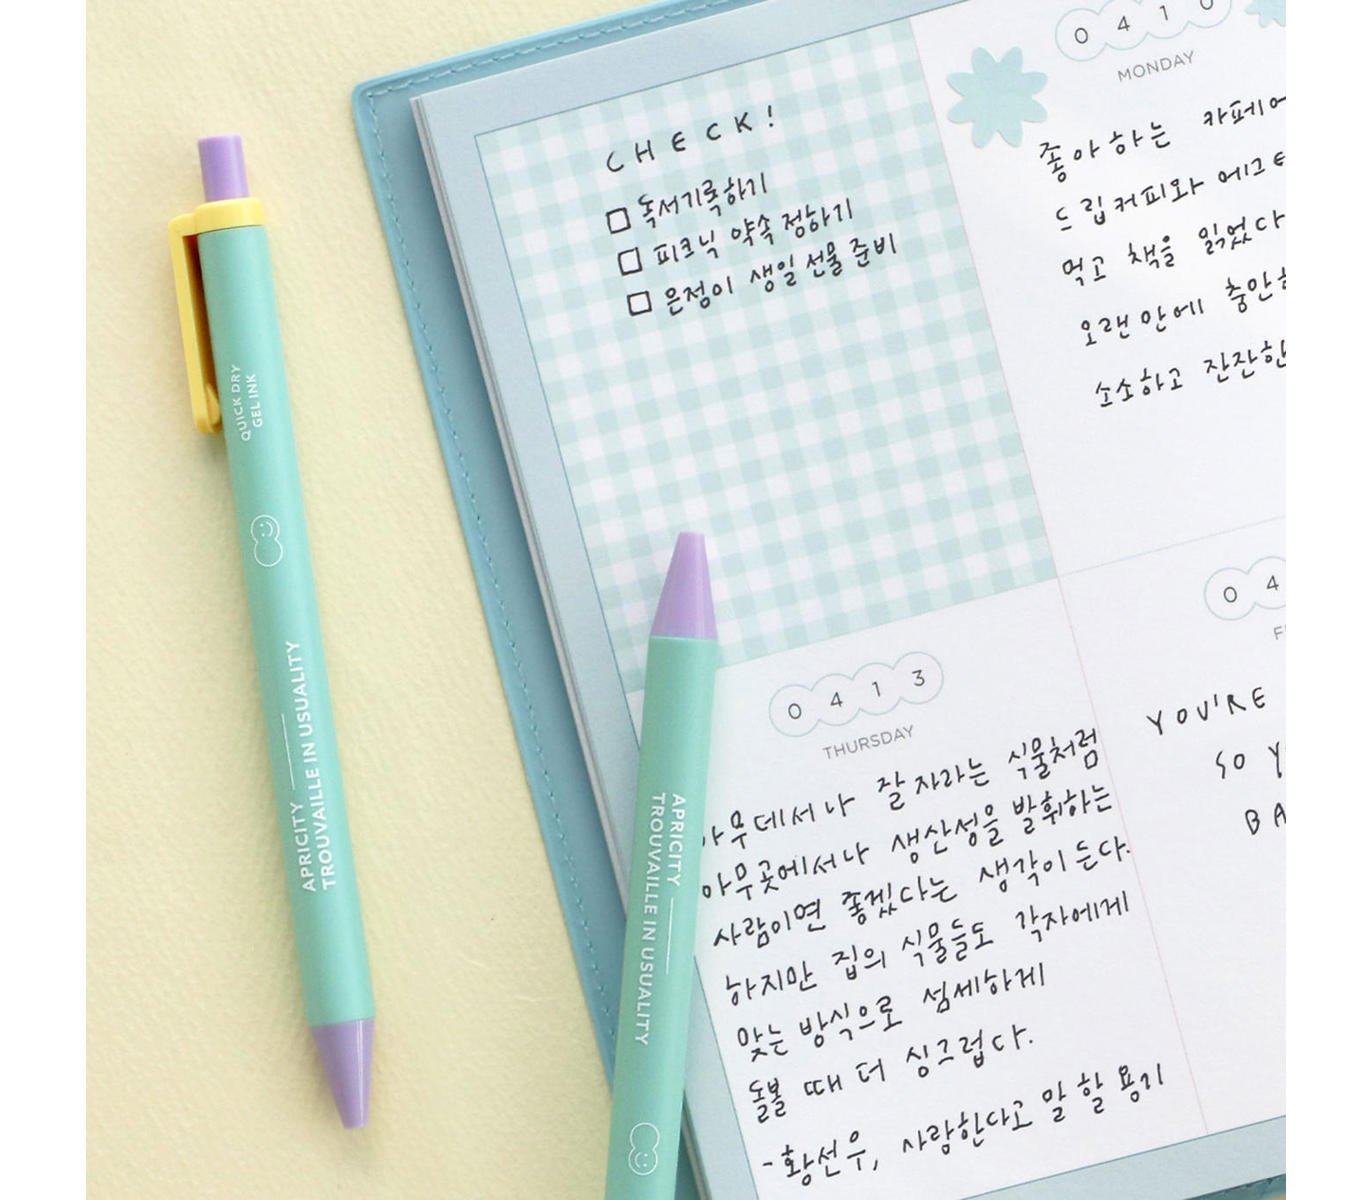 QUICK DRY
GEL INK
APRICITY
TROUVAILLE IN USUALITY
CHECK!
독서기록하기
피크닉 약속 정하기
은정이 생일 선물 준비
0410
MONDAY
좋아하는 카페에
드립커피와
먹고 책을 읽었다
오랜만에
소소하고 잔잔한
0413
THURSDAY
아무데서나 잘 자라는 식물처럼
아무곳에서나 생산성을 발휘하는
사람이면 좋겠다는 생각이 든다.
하지만 집의 식물들도 각자에게
맞는 방식으로 섬세하게
돌볼 때 더 싱그럽다.
-황선우, 사랑한다고 말할 용기
04
YOU'RE
SO
BA
APRICITY
TROUVAILLE IN USUALITY